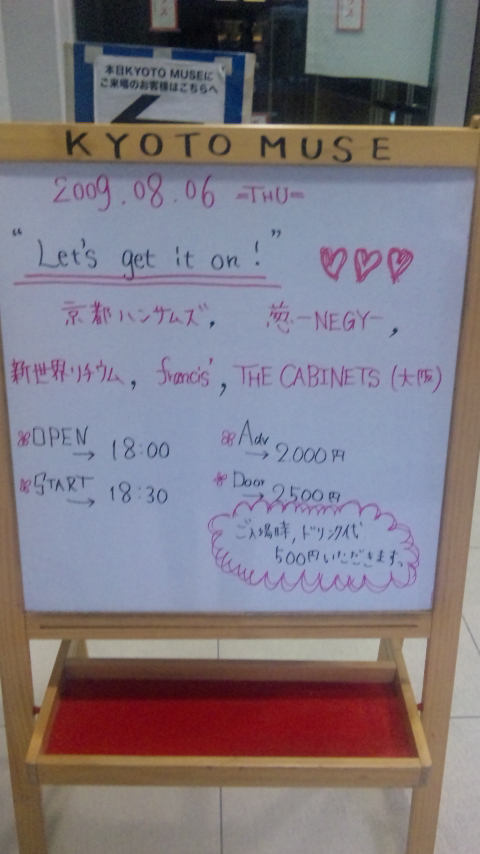 本日KYOTO MUSEに
ご来場のお客様はこちらへ
KYOTO MUSE
2009.08.06 =THU=
“Let's get it on!”
京都ハンサムズ, 葱-NEGY-,
新世界リチウム, francis', THE CABINETS (大阪)
OPEN → 18:00
START → 18:30
Adv → 2.000円
Door → 2500円
ご入場時, ドリンク代
500円いただきます。